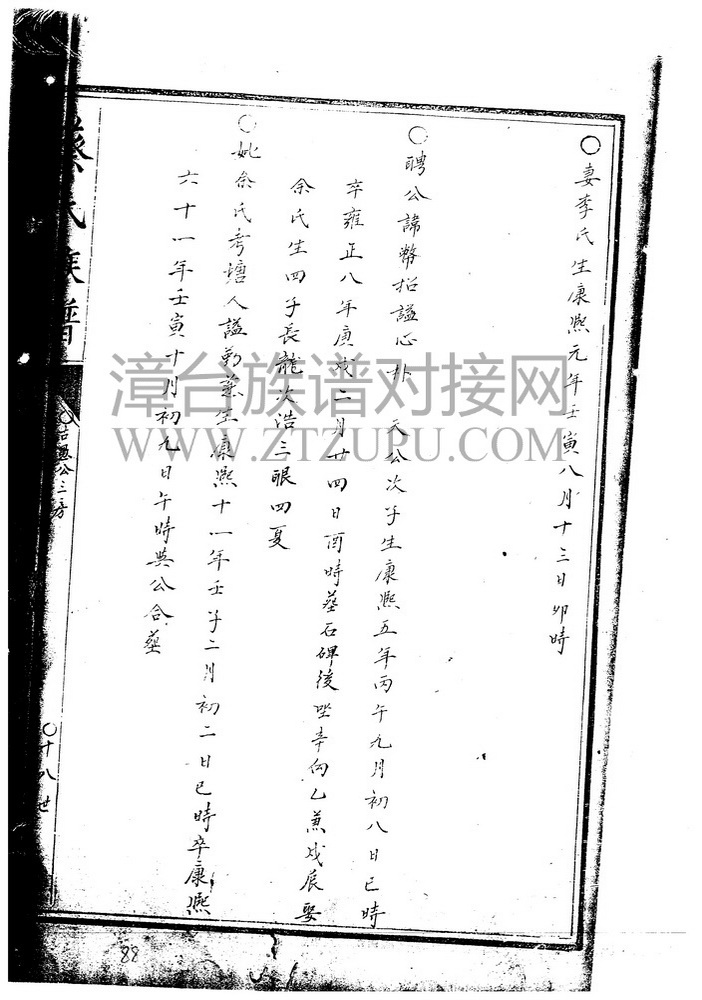 〇妻李氏生康熙元年壬寅八月十三日卯時
〇聘公諱幣招謚心朴 天公次子生康熙五年丙午九月初八日巳時
卒雍正八年庚戌二月廿四日酉時葬石碑後坐辛向乙兼戌辰娶
余氏生四子長龍次浩三眼四夏
〇妣余氏考塘人謚勤慈生康熙十一年壬子二月初二日巳時卒康熙
六十一年壬寅十月初九日午時與公合葬
蔡氏族譜
公三房
〇十八世
88
漳台族谱对接网
WWW.ZTZUPU.COM